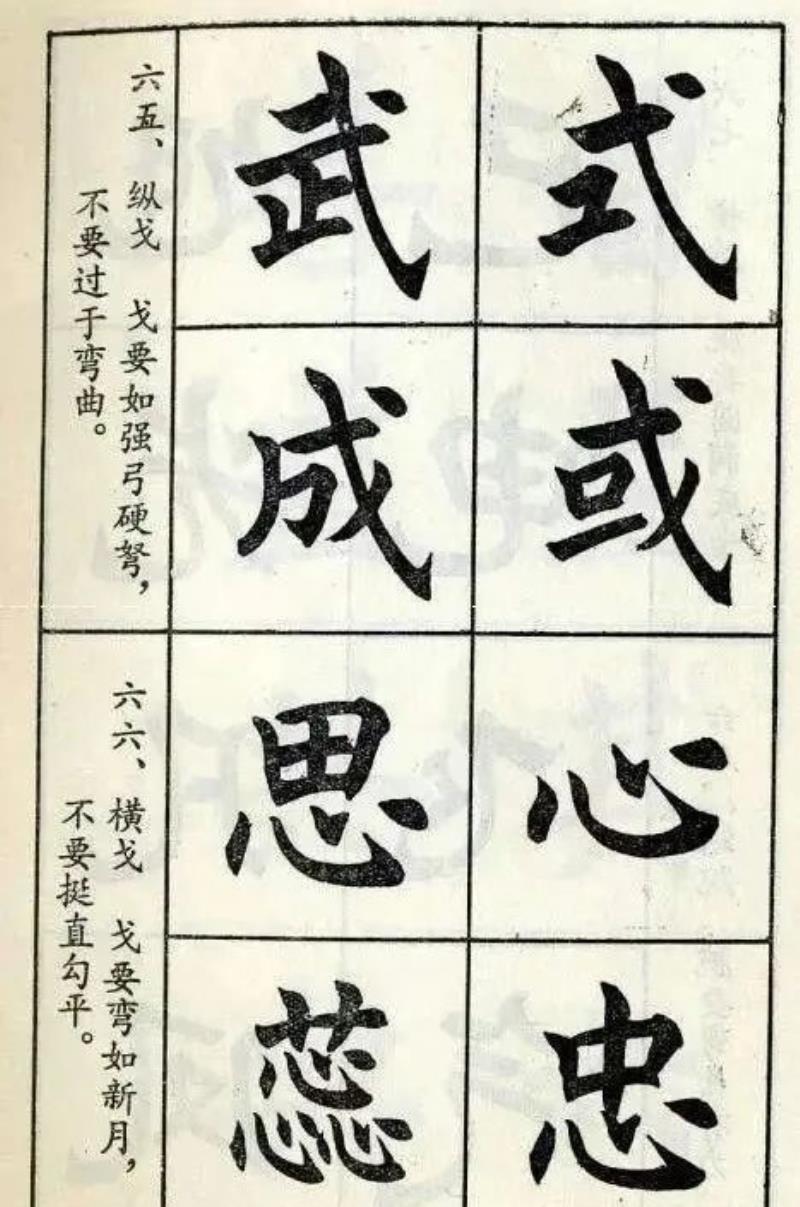 六五、纵戈 戈要如强弓硬弩，
不要过于弯曲。
式 武
或 成
六六、横戈 戈要弯如新月，
不要挺直勾平。
心 思
忠 蕊